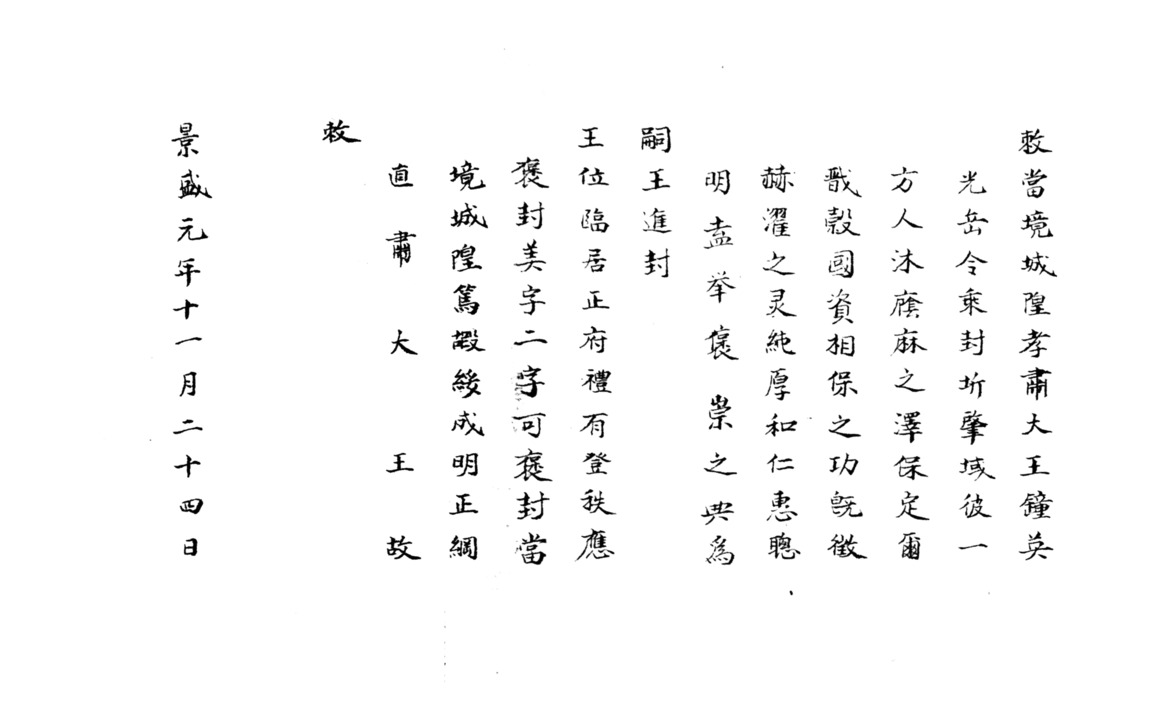 敕當境城隍孝肅大王鐘英
光岳令乘封圻肇域彼一
方人沐蔭庥之澤保定爾
戬榖國資相保之功旣徵
赫濯之灵純厚和仁惠聰
明盍举褒崇之典為
嗣王進封
王位臨居正府禮有登秩應
褒封美字二字可褒封當
境城隍篤嘏綏成明正綱
直肅大王故
敕
景盛元年十一月二十四日